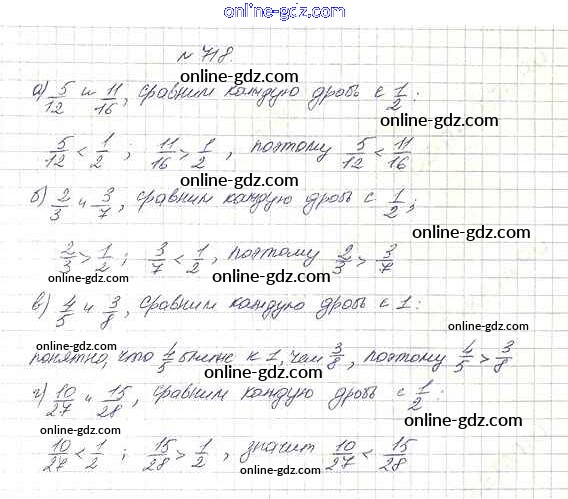 online-gdz.com
№ 718.
online-gdz.com
а) 5/12 и 11/16, сравним каждую дробь с 1/2:
online-gdz.com
online-gdz.com
5/12 < 1/2 ; 11/16 > 1/2 , поэтому 5/12 < 11/16
online-gdz.com
online-gdz.com
б) 2/3 и 3/7, сравним каждую дробь с 1/2;
online-gdz.com
2/3 > 1/2; 3/7 < 1/2, поэтому 2/3 > 3/7
online-gdz.com
online-gdz.com
в) 4/5 и 3/8, сравним каждую дробь с 1:
online-gdz.com
понятно, что 4/5 ближе к 1, чем 3/8, поэтому 4/5 > 3/8
online-gdz.com
online-gdz.com
г) 10/27 и 15/28, сравним каждую дробь с 1/2:
online-gdz.com
online-gdz.com
10/27 < 1/2 ; 15/28 > 1/2 , значит 10/27 < 15/28
online-gdz.com
online-gdz.com